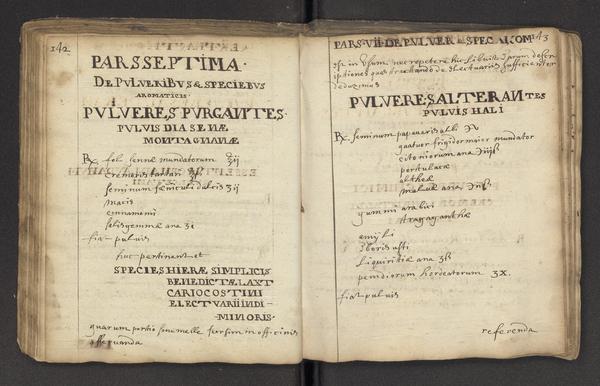 142
PARS SEPTIMA.
DE PULVERIBUS & SPECIEBUS
AROMATICIS.
PULVERES PURGANTES.
PULVIS DIA SENÆ
MONTAGNANÆ
℞ fol. sennæ mundatorum ʒij
cremoris tartari
seminum fœniculi dulcis ʒij
macis
cinnamomi
salis gemmæ ana ʒi
fiat pulvis
huc pertinent et
SPECIES HIERÆ SIMPLICIS
BENEDICTÆ LAXT
CARIOCOSTINI
ELECTUARII INDI-
MINORIS.
quarum portio sine melle seorsim in officinis
asservanda
PARS. VII. DE PULVER & SPEC. AROM 143
est in usum nec repetere hic libuit
iptiones quas tractando de electuariis sufficienter
deduximus
PULVERES ALTERANTES
PULVIS HALI
℞ seminum papaveris albi
quatuor frigidor maior mundator
citoniorum ana
portulacæ
altheæ
malvæ ana
gummi arabici
tragaganthæ
amyli
Iboris usti
liquiritiæ ana
penidiorum hordeatorum ʒX.
fiat pulvis
referenda